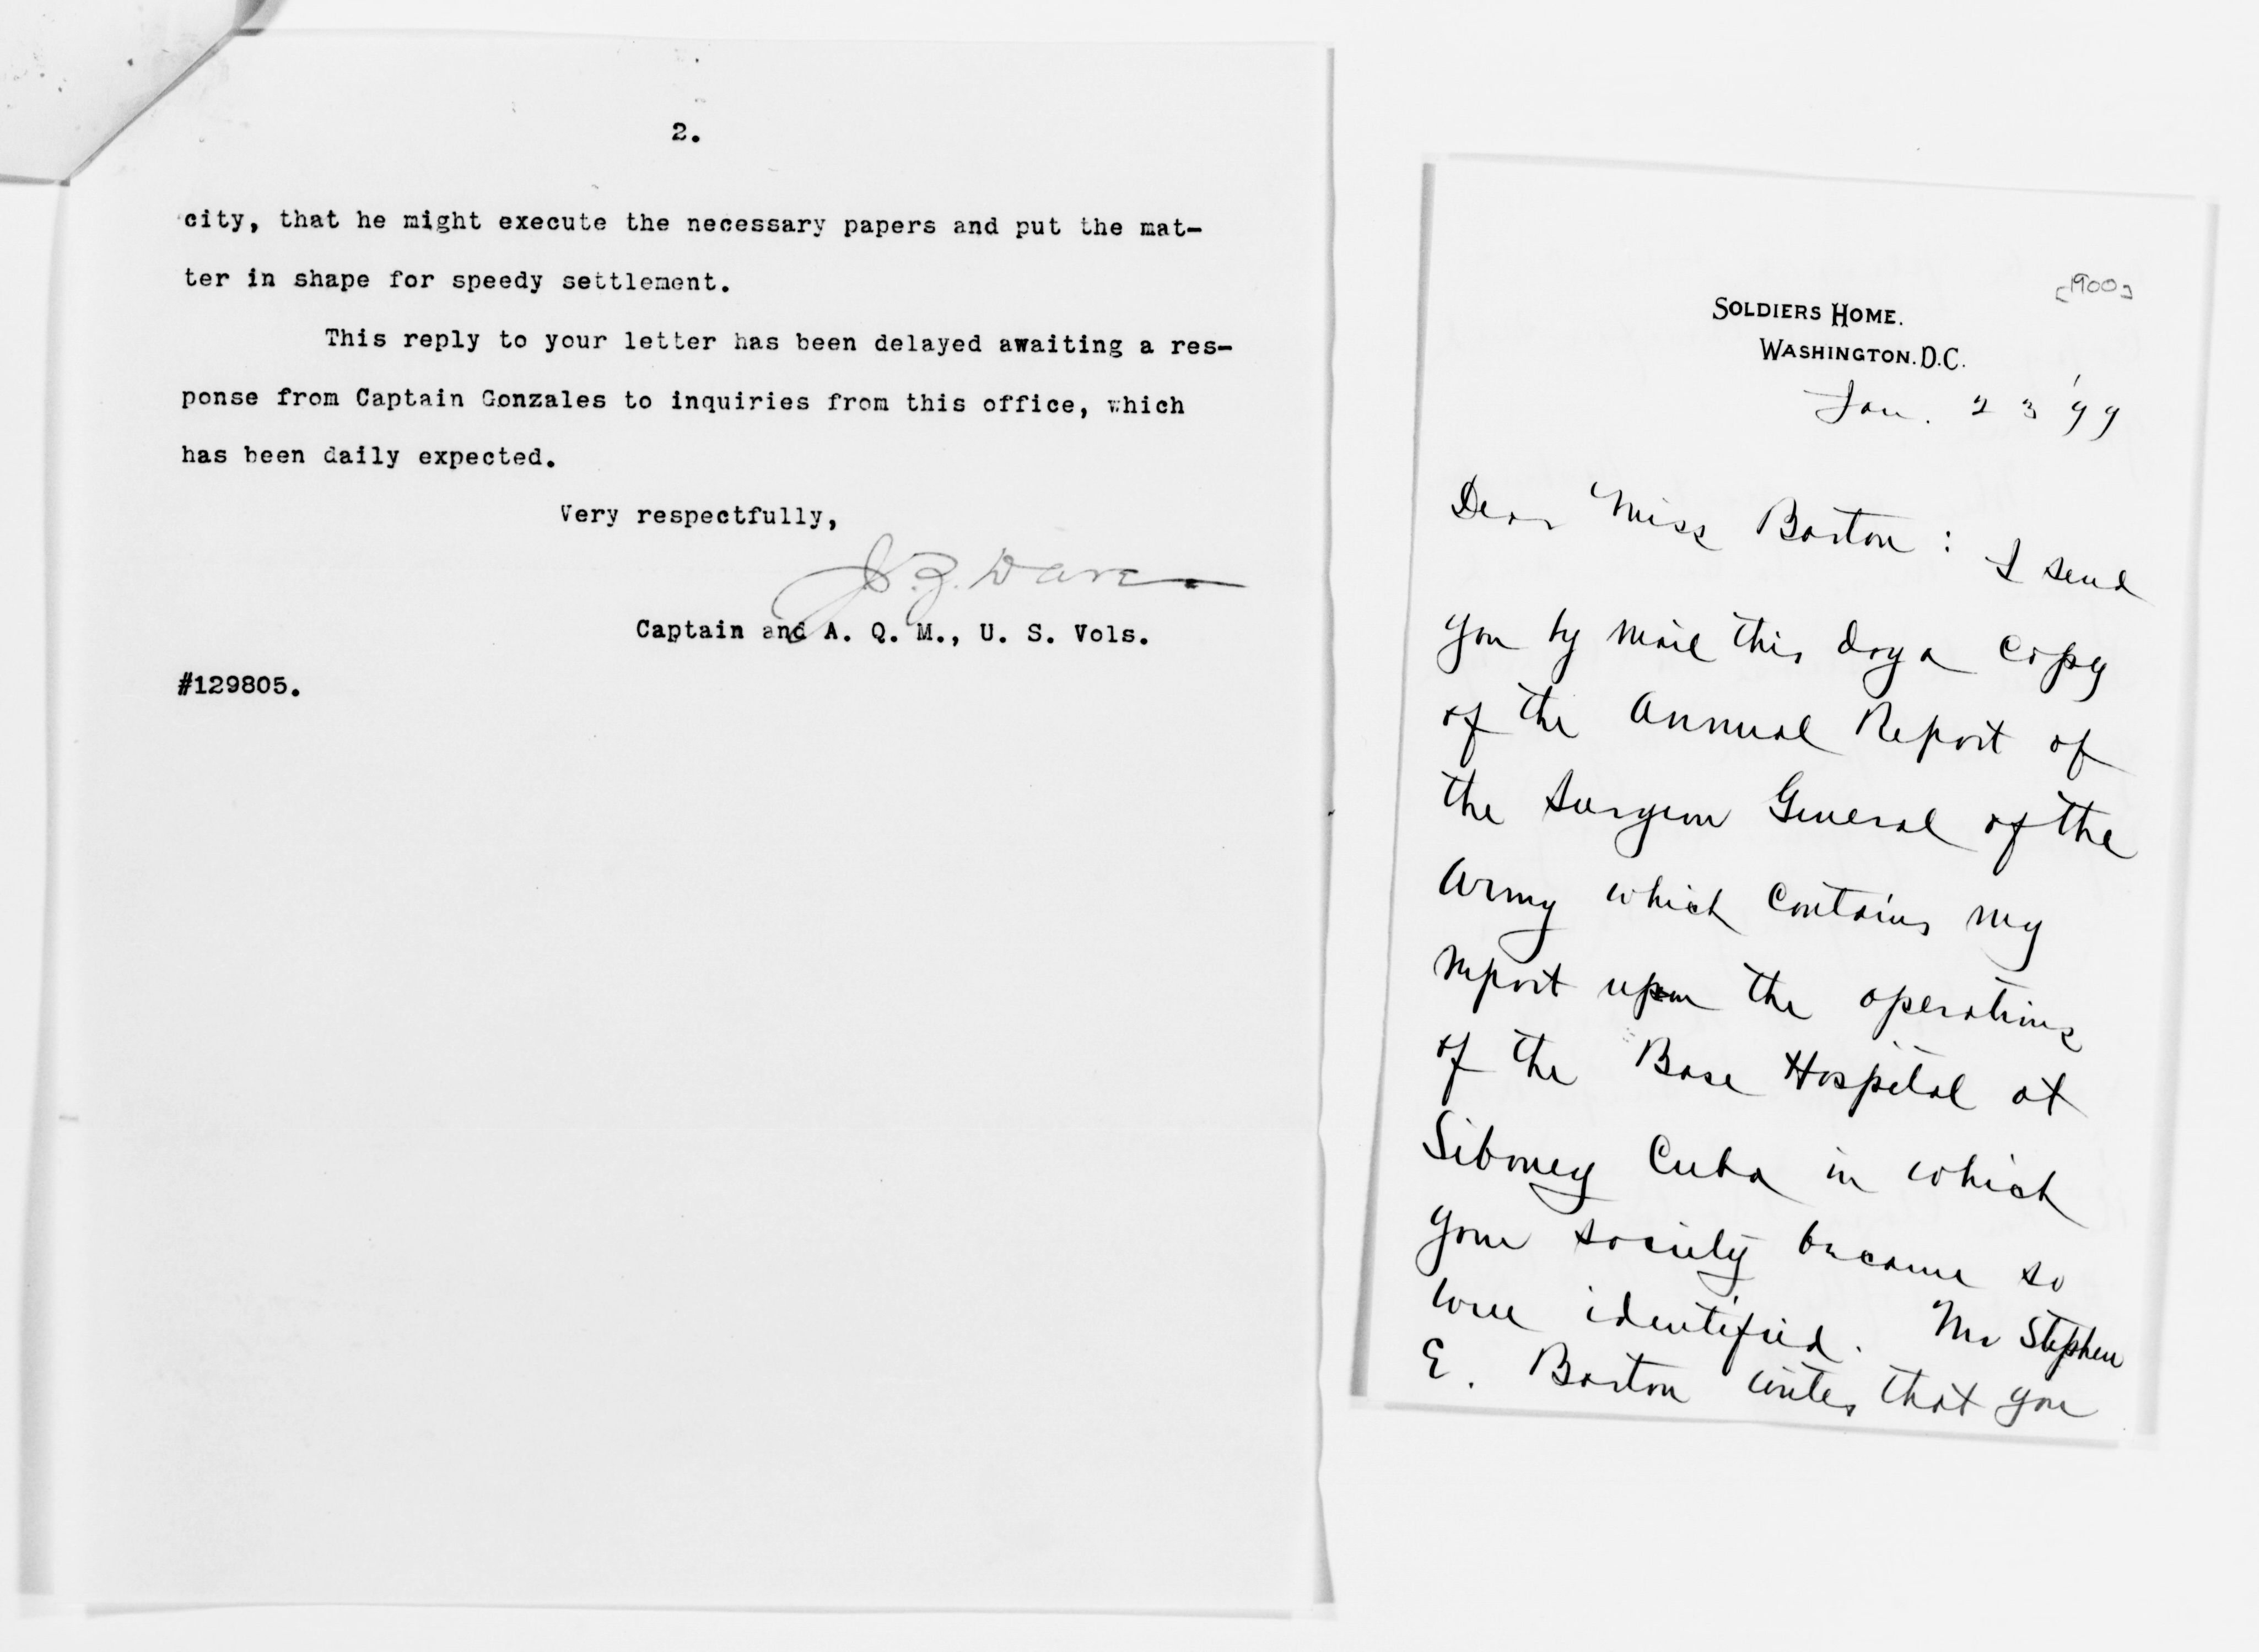 2.
city, that he might execute the necessary papers and put the mat-
ter in shape for speedy settlement.
This reply to your letter has been delayed awaiting a res-
ponse from Captain Gonzales to inquiries from this office, which
has been daily expected.
Very respectfully,
Captain and A. Q. M., U. S. Vols.
#129805.
[1900]
SOLDIERS HOME.
WASHINGTON. D.C.
Jan. 23 '99
Dear Miss Barton: I send
you by mail this day a copy
of the Annual Report of
the Surgeon General of the
Army which contains my
report upon the operations
of the Base Hospital at
Siboney Cuba in which
your society became so
well identified. Mr Stephen
E. Barton writes that you